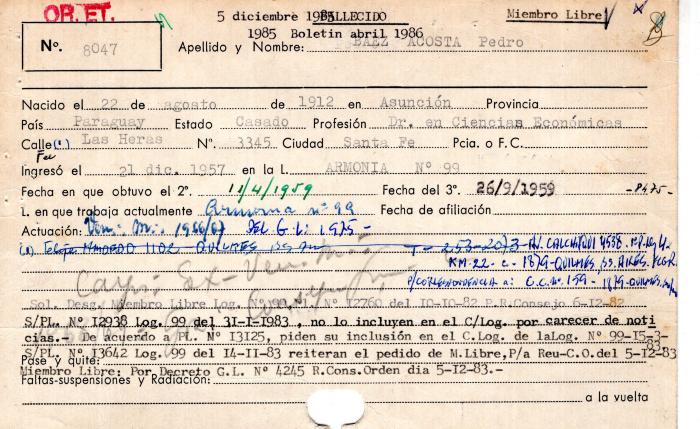 OR. ET.
5 diciembre 1985 FALLECIDO
Miembro Libre
1985 Boletin abril 1986
Nº. 8047
Apellido y Nombre: BAEZ ACOSTA Pedro
Nacido el 22 de agosto de 1912 en Asunción Provincia
País Paraguay Estado Casado Profesión Dr. en Ciencias Económicas
Calle(1) Las Heras Nº. 3345 Ciudad Santa Fe Pcia. o F.C.
Ingresó el 21 dic. 1957 en la L. ARMONIA Nº 99
Fecha en que obtuvo el 2º. 11/4/1959 Fecha del 3º. 26/9/1959
L. en que trabaja actualmente Armonia nº 99 Fecha de afiliación
Actuación: Ven. M. 1966/67 DEL G.L. 1975-
T-253-2073-AV. CALCHAQUI 4538
KM.22-C-1879-QUILMES,
P/CORRESPONDENCIA a: C.C. Nº 159 - 1879-QUILMES
Ex-Ven.
Sol. Desg. Miembro Libre Log. Nº 99 Nº 12760 del 10-10-82 P.R.Consejo 6-12-82
S/PL. Nº 12938 Log. 99 del 31-1-1983 , no lo incluyen en el C/Log. por carecer de noti
cias.- De acuerdo a PL. Nº 13125, piden su inclusión en el C.Log. de laLog. Nº 99-15-3-
83
S/PL. Nº 13642 Log. 99 del 14-11-83 reiteran el pedido de M.Libre,P/a Reu-C.O.del 5-12-83
Pase y quite:
Miembro Libre: Por Decreto G.L. Nº 4245 R.Cons.Orden dia 5-12-83.-
Faltas-suspensiones y Radiación:
a la vuelta